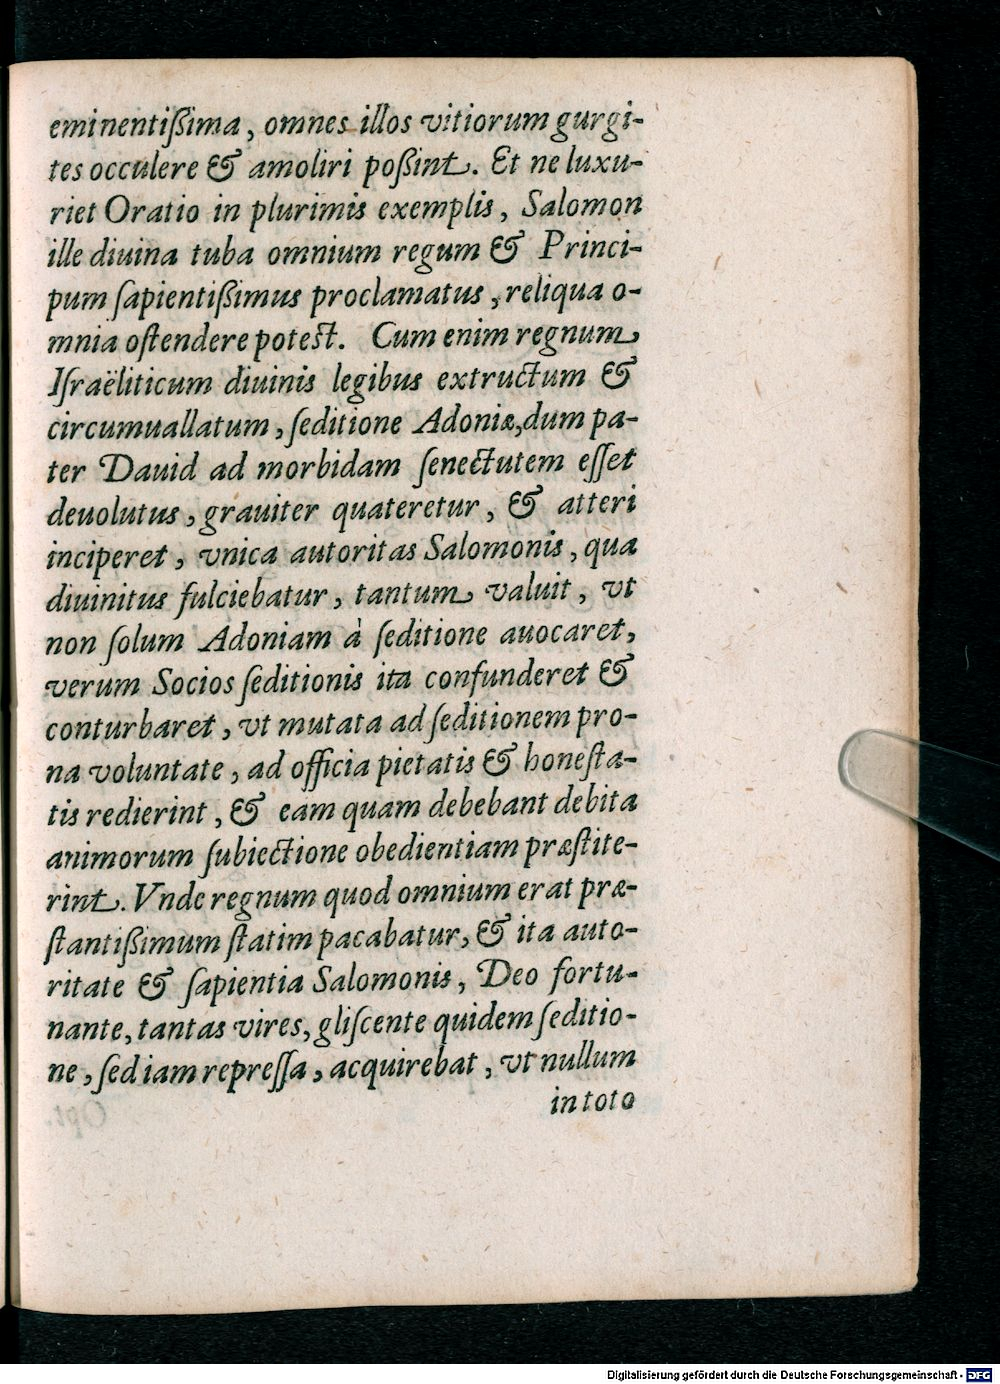 eminentißima, omnes illos vitiorum gurgi-
tes occulere & amoliri poßint. Et ne luxu-
riet Oratio in plurimis exemplis, Salomon
ille diuina tuba omnium regum & Princi-
pum ſapientißimus proclamatus, reliqua o-
mnia oſtendere poteſt. Cum enim regnum
Iſraëliticum diuinis legibus extructum &
circumuallatum, ſeditione Adoniæ, dum pa-
ter Dauid ad morbidam ſenectutem eſſet
deuolutus, grauiter quateretur, & atteri
inciperet, vnica autoritas Salomonis, qua
diuinitus fulciebatur, tantum valuit, vt
non ſolum Adoniam à ſeditione auocaret,
verum Socios ſeditionis ita confunderet &
conturbaret, vt mutata ad ſeditionem pro-
na voluntate, ad officia pietatis & honeſta-
tis redierint, & eam quam debebant debita
animorum ſubiectione obedientiam præſtite-
rint. Vnde regnum quod omnium erat præ-
ſtantißimum ſtatim pacabatur, & ita auto-
ritate & ſapientia Salomonis, Deo fortu-
nante, tantas vires, gliſcente quidem ſeditio-
ne, ſed iam repreſſa, acquirebat, vt nullum
in toto
Digitalisierung gefördert durch die Deutsche Forschungsgemeinschaft - DFG